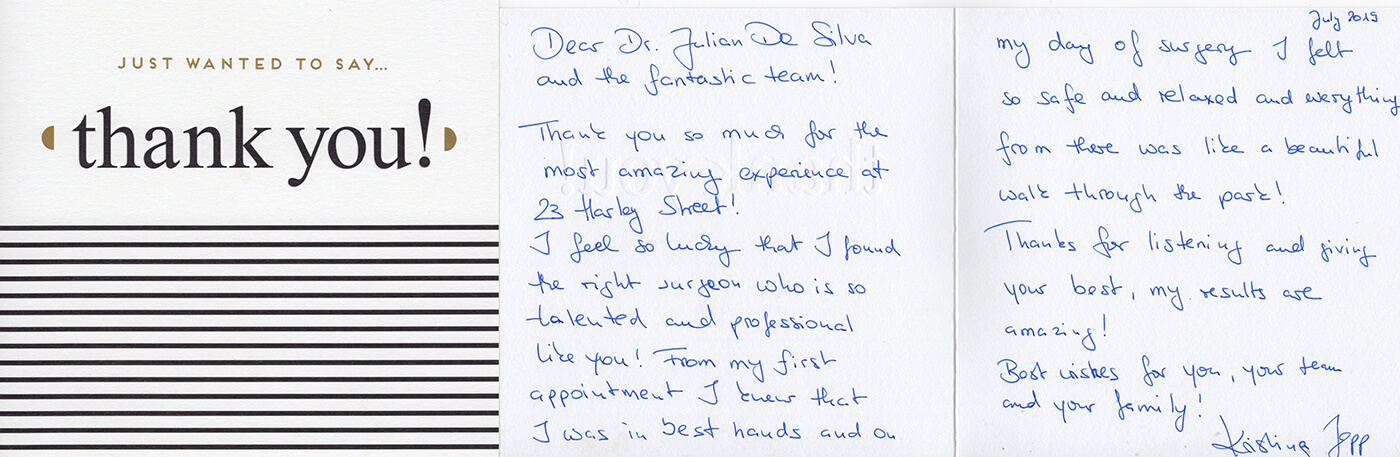 JUST WANTED TO SAY...
thank you!
Dear Dr. Julian De Silva
and the fantastic team!
Thank you so much for the
most amazing experience at
23 Harley Street!
I feel so lucky that I found
the right surgeon who is so
talented and professional
like you! From my first
appointment I knew that
I was in best hands and on
July 2019
my day of surgery I felt
so safe and relaxed and everything
from there was like a beautiful
walk through the park!
Thanks for listening and giving
your best, my results are
amazing!
Best wishes for you, your team
and your family!
Kristina